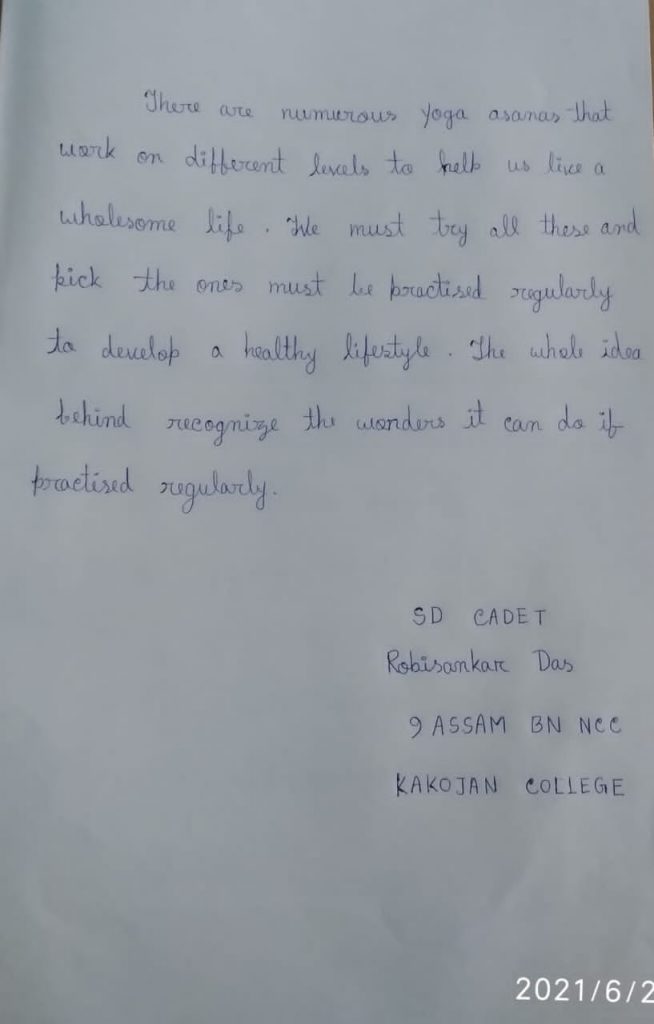 There are numurous yoga asanas that
work on different levels to help us live a
wholesome life. We must try all these and
pick the ones must be practised regularly
to develop a healthy lifestyle. The whole idea
behind recognize the wonders it can do if
practised regularly.
SD CADET
Robisankar Das
9 ASSAM BN NCC
KAKOJAN COLLEGE
2021/6/2